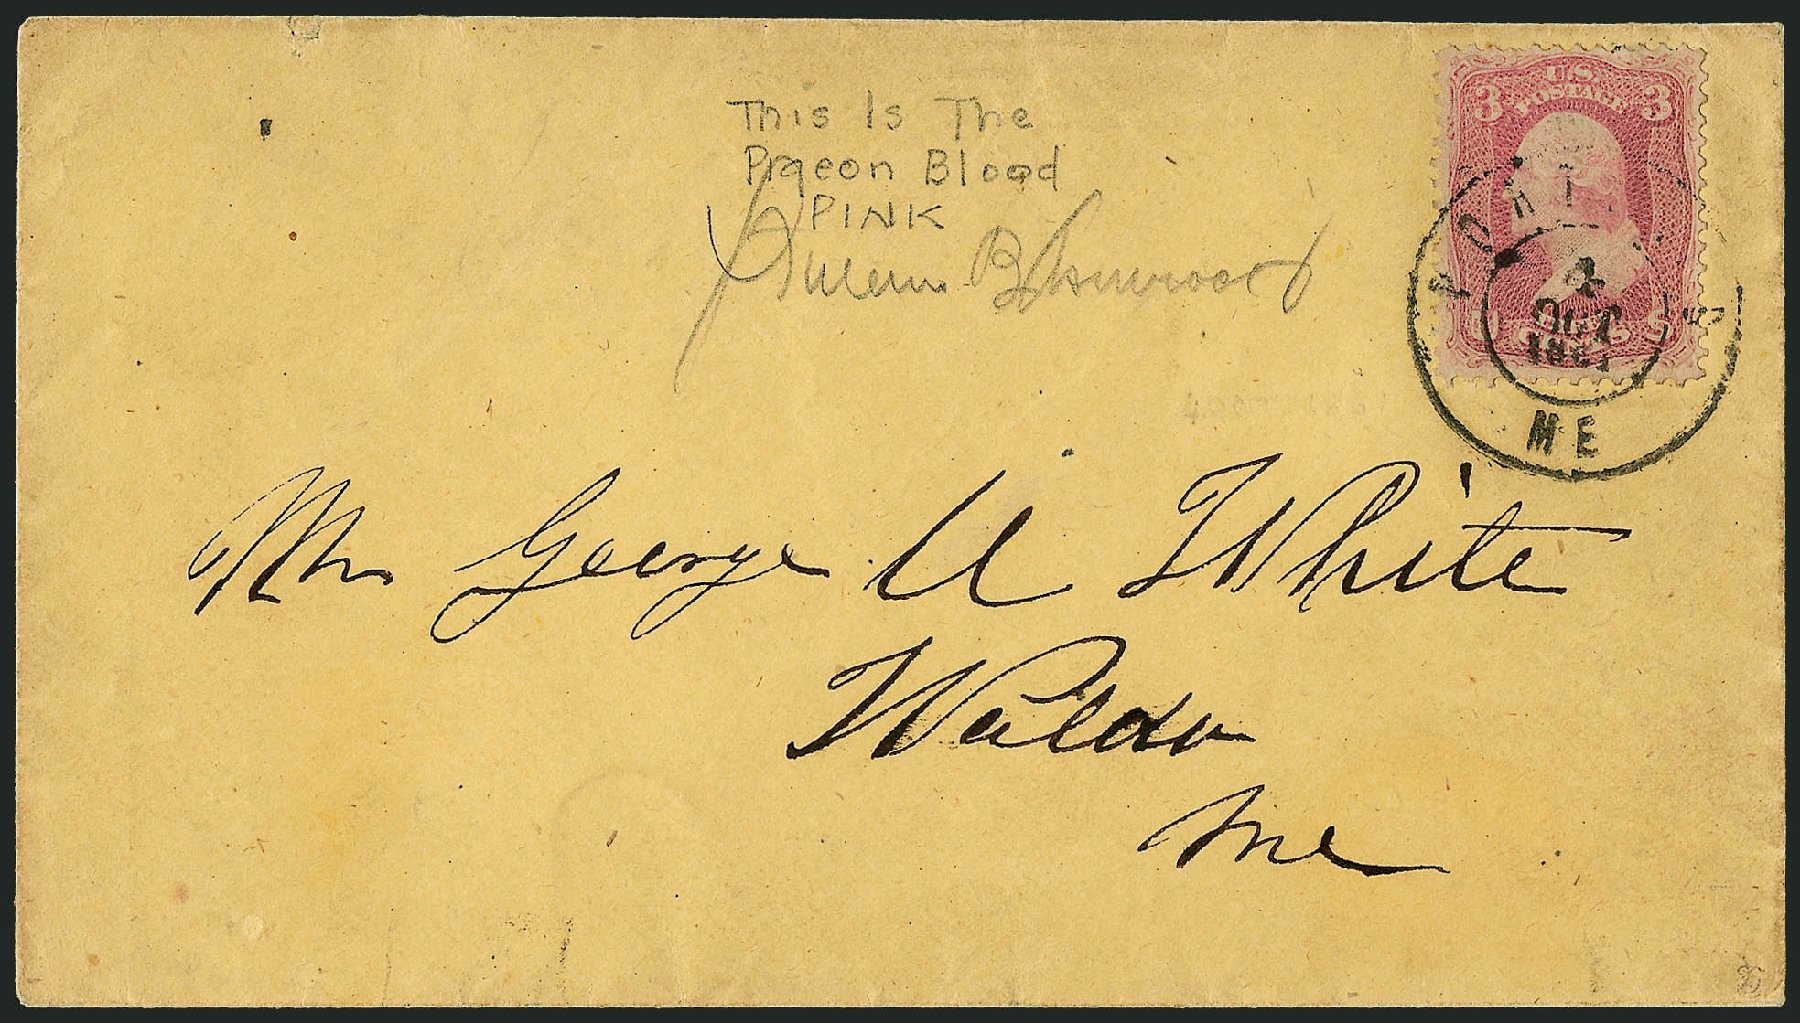 This Is The
Pigeon Blood
PINK
U.S.
POSTAGE
3 3
PORT
4
OCT
1861
ME
Mr George U White
Waldo
Me